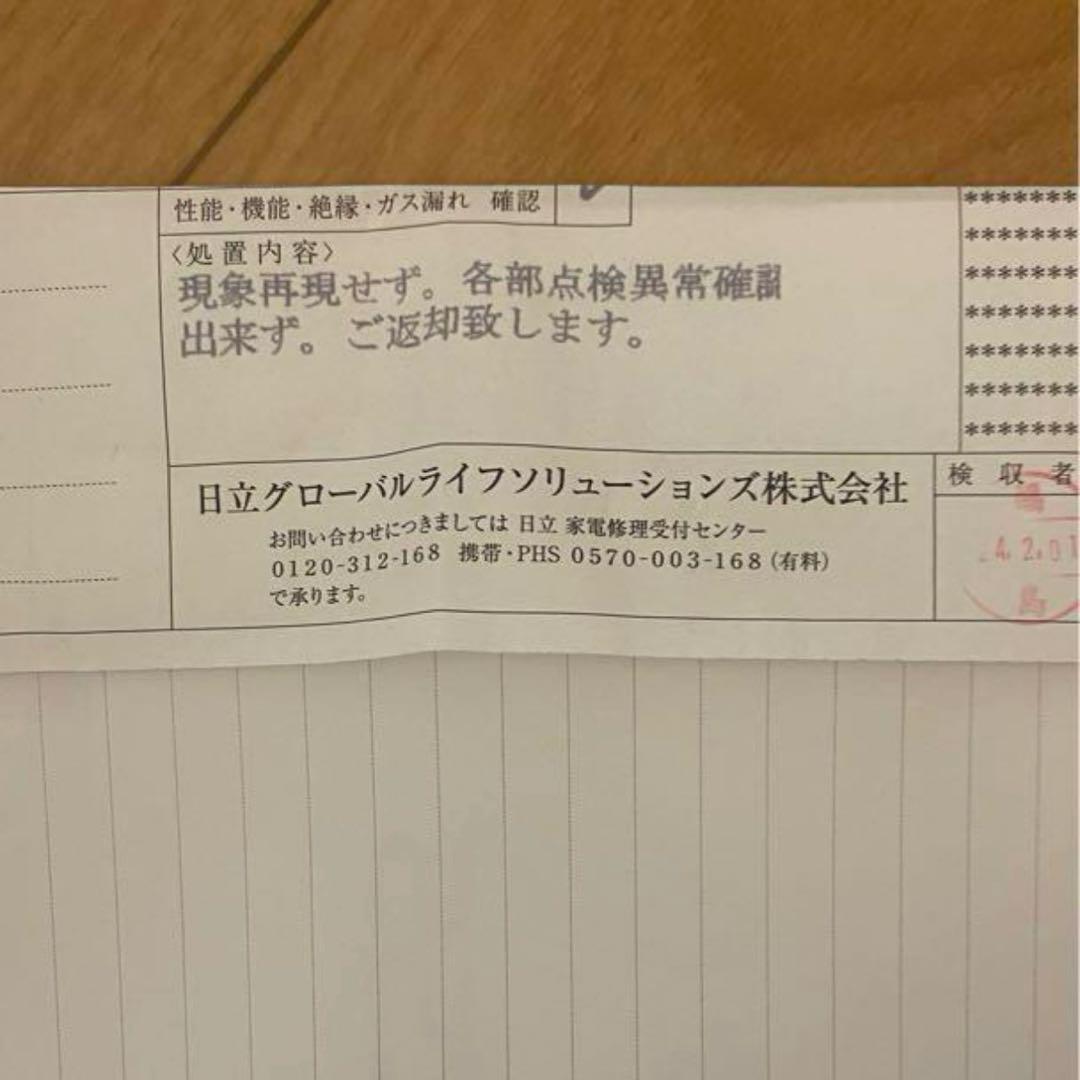 性能・機能・絶縁・ガス漏れ 確認
〈処置内容〉
現象再現せず。各部点検異常確認
出来ず。ご返却致します。
*******
*******
*******
*******
*******
*******
*******
日立グローバルライフソリューションズ株式会社
お問い合わせにつきましては 日立 家電修理受付センター
0120-312-168 携帯・PHS 0570-003-168(有料)
で承ります。
検収者
4.2.01
島